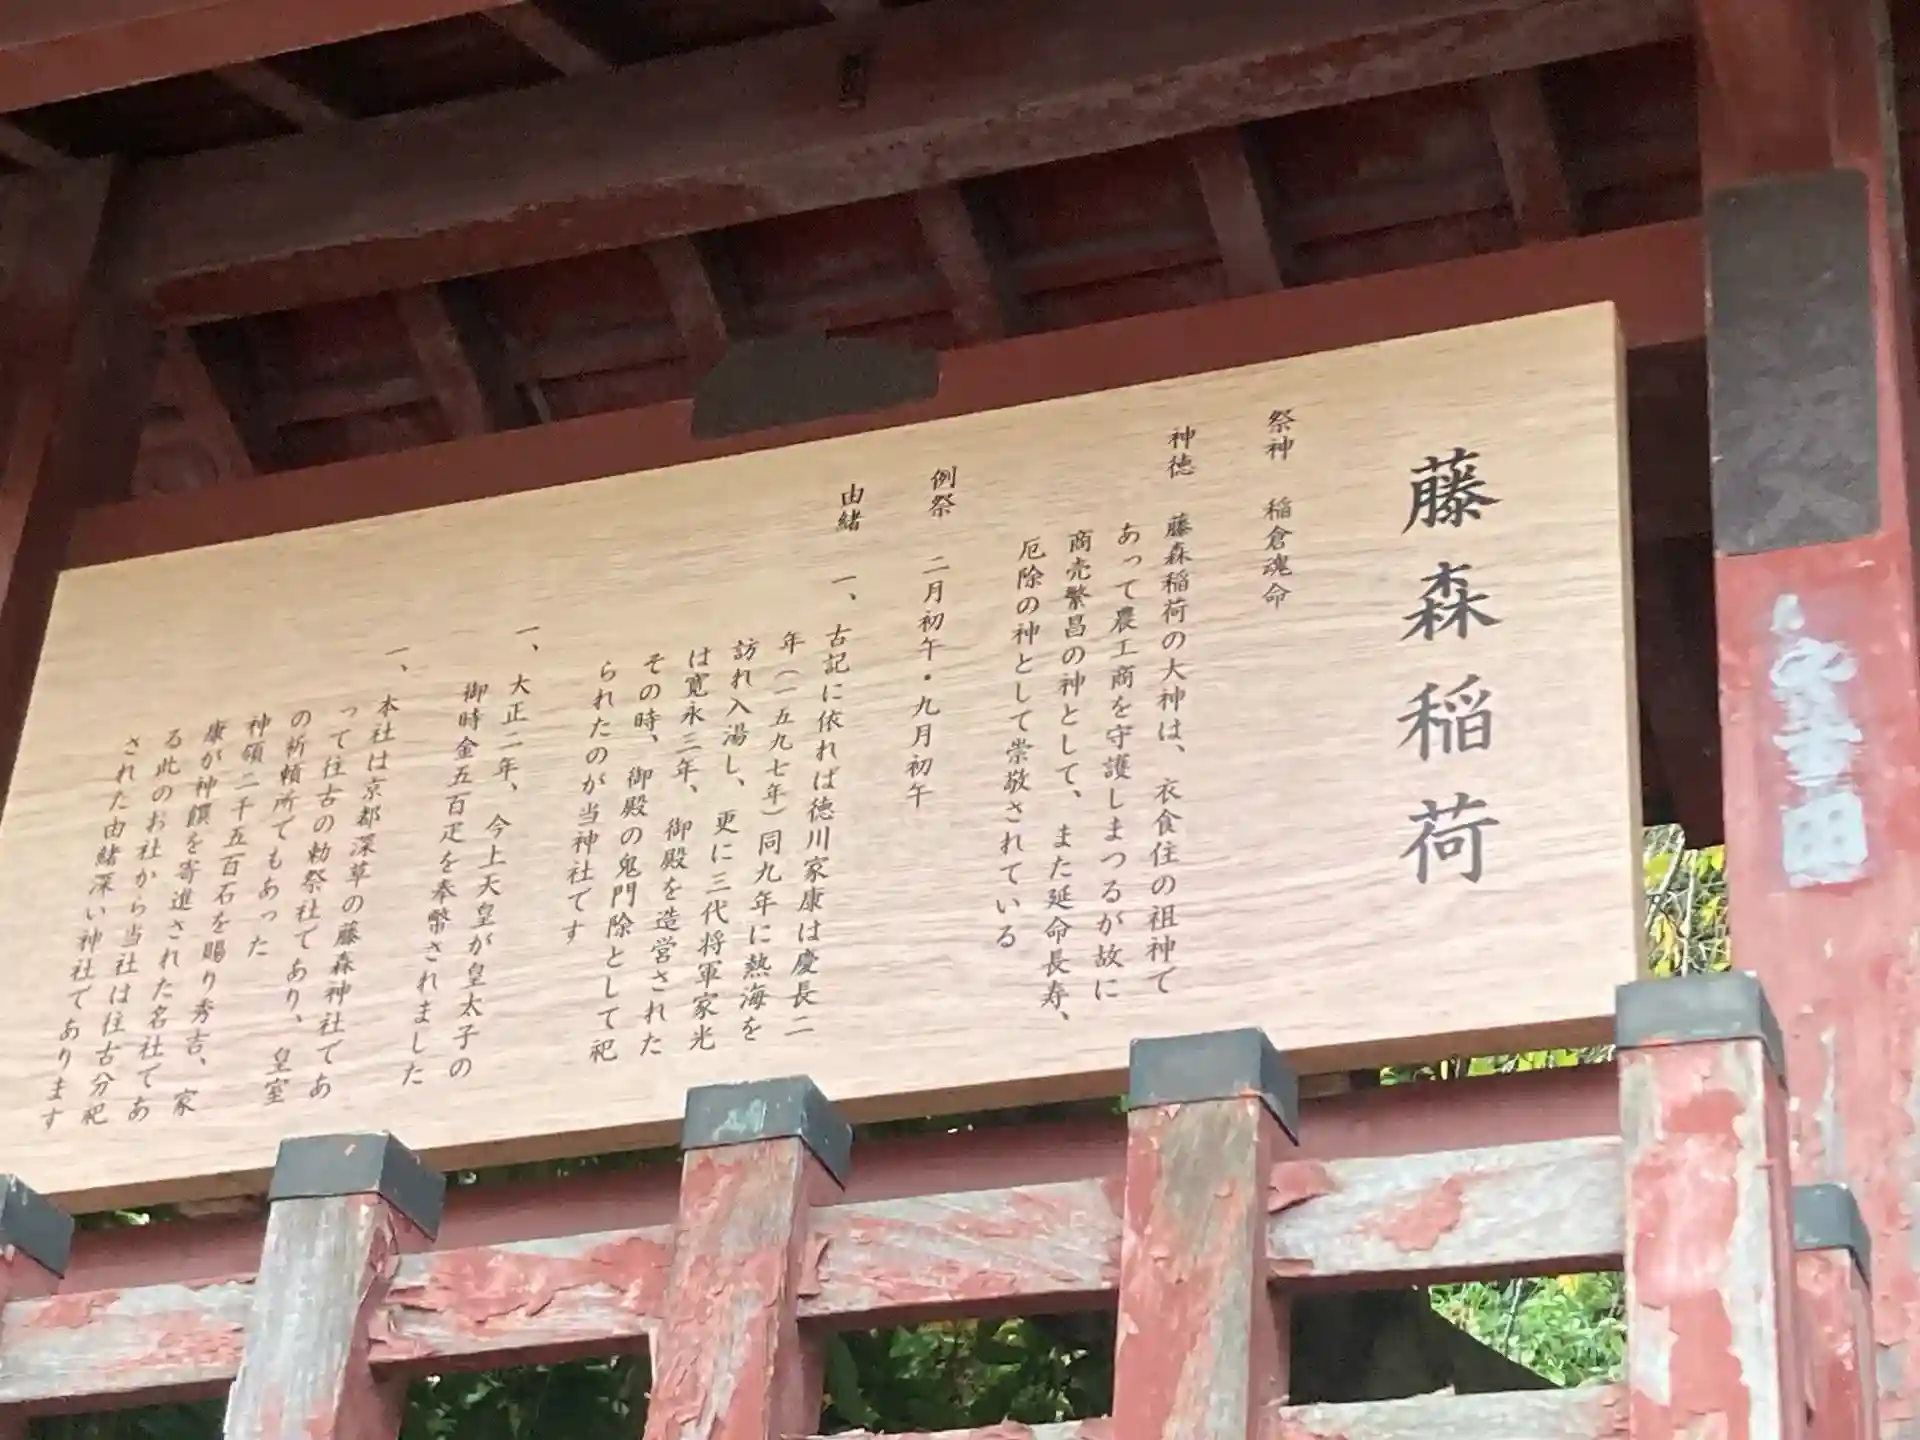 藤森稲荷
祭神　稲倉魂命
神徳　藤森稲荷の大神は、衣食住の祖神で
あって農工商を守護しまつるが故に
商売繁昌の神として、また延命長寿、
厄除の神として崇敬されている
例祭　二月初午・九月初午
由緒　一、古記に依れば徳川家康は慶長二
年（一五九七年）同九年に熱海を
訪れ入湯し、更に三代将軍家光
は寛永三年、御殿を造営された
その時、御殿の鬼門除として祀
られたのが当神社です
一、大正二年、今上天皇が皇太子の
御時金五百疋を奉幣されました
一、本社は京都深草の藤森神社であ
って往古の勅祭社であり、皇室
の祈頼所でもあった
神領二千五百石を賜り秀吉、家
康が神饌を寄進された名社であ
る此のお社から当社は往古分祀
された由緒深い神社であります